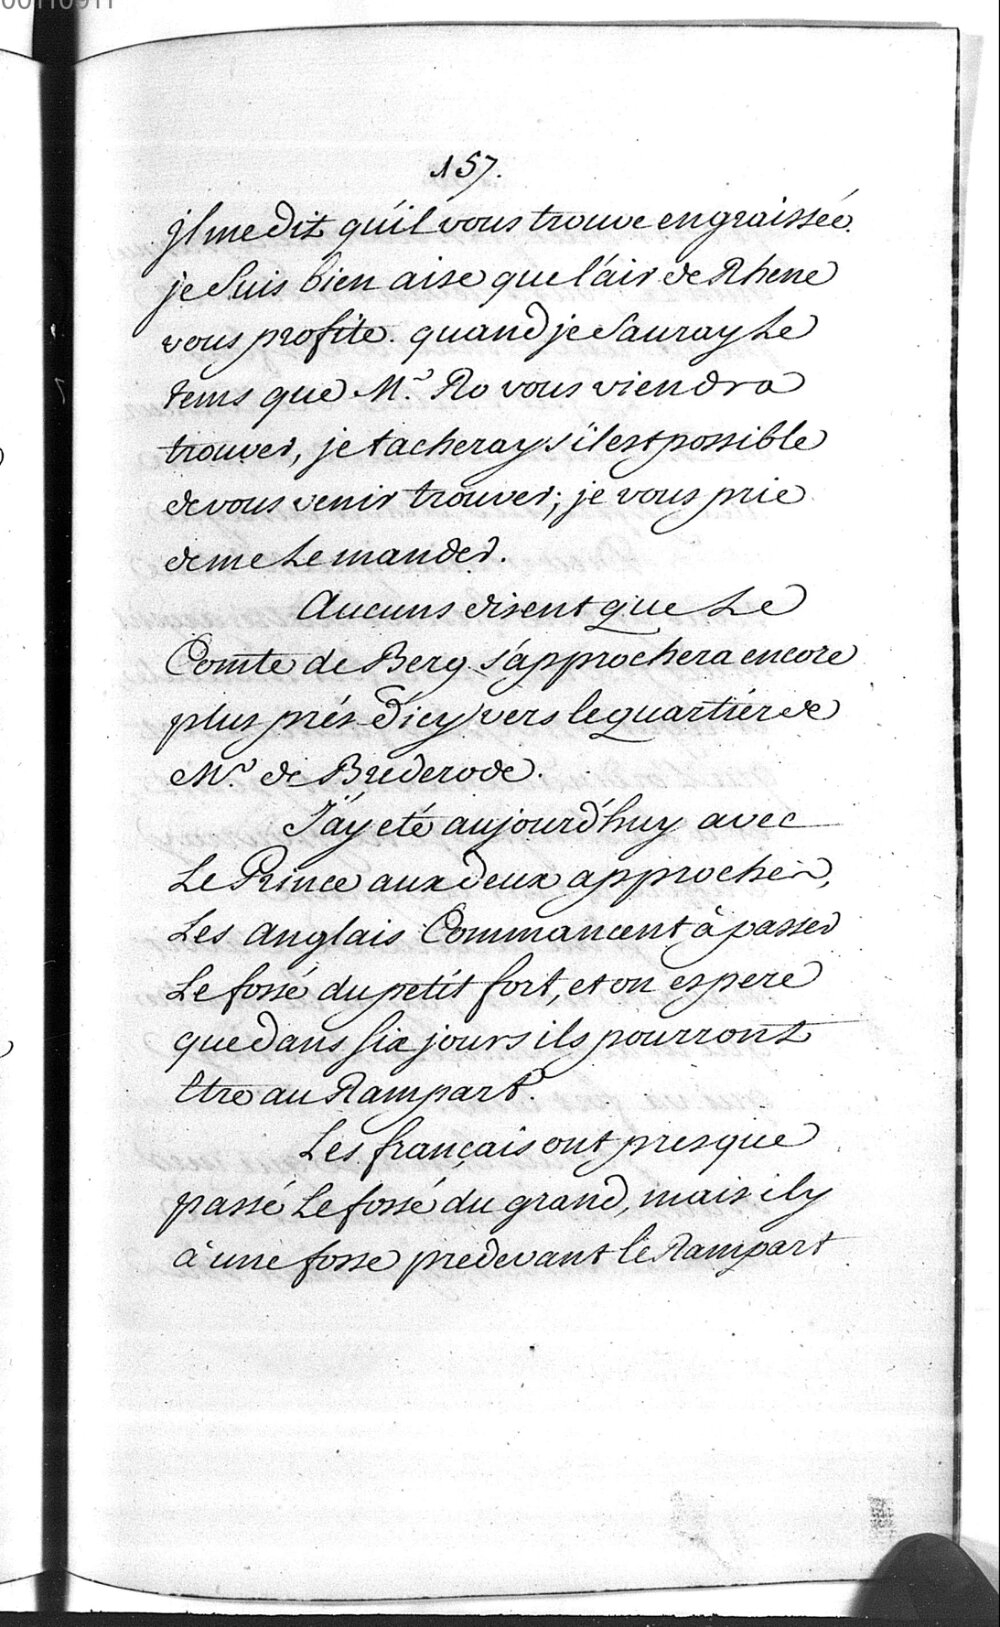 157.
jl me dit qu'il vous trouve engraissée.
je suis bien aise que l'air de Rhene
vous profite. quand je sauray Le
tems que Mr. Ro vous viendra
trouver, je tacheray s'il est possible
de vous venir trouver; je vous prie
de me Le mander.
Aucuns disent que Le
Comte de Berg s'approchera encore
plus prés d'icy vers le quartiér de
Mr. de Brederode.
J'ay eté aujourd'huy avec
Le Prince aux deux approches,
Les anglais Commancent à passer
Le fossé du petit fort, et on espere
que dans six jours ils pourront
etre au Rampart.
Les français ont presque
passé Le fossé du grand, mais il y
à une fosse predevant le Rampart